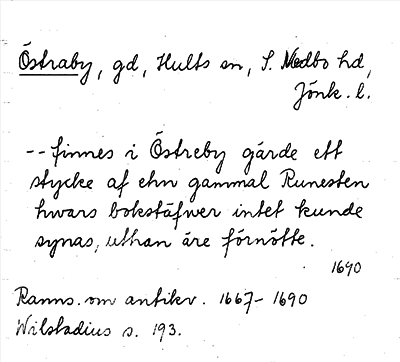 Östraby, gd, Hults sn, S. Vedbo hd,
Jönk. l.
-- finnes i Östreby gärde ett
stycke af ehn gammal Runesten
hwars bokstäfwer intet kunde
synas, uthan äre förnötte.
1690
Ranns. om antikv. 1667-1690
Wilstadius s. 193.